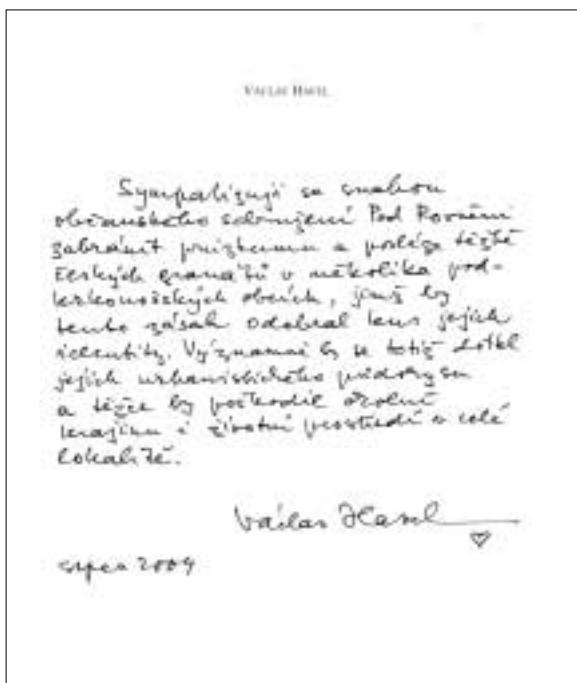 VÁCLAV HAVEL
Sympatizuji se snahou
občanského sdružení Pod Rovněmi
zabránit průzkumu a posléze těžbě
českých granátů v několika pod-
krkonošských obcích, jimž by
tento zásah odebral kus jejich
identity. Významně by se totiž dotkl
jejich urbanistického půdorysu
a těžce by poškodil okolní
krajinu i životní prostředí v celé
lokalitě.
Václav Havel
srpen 2009